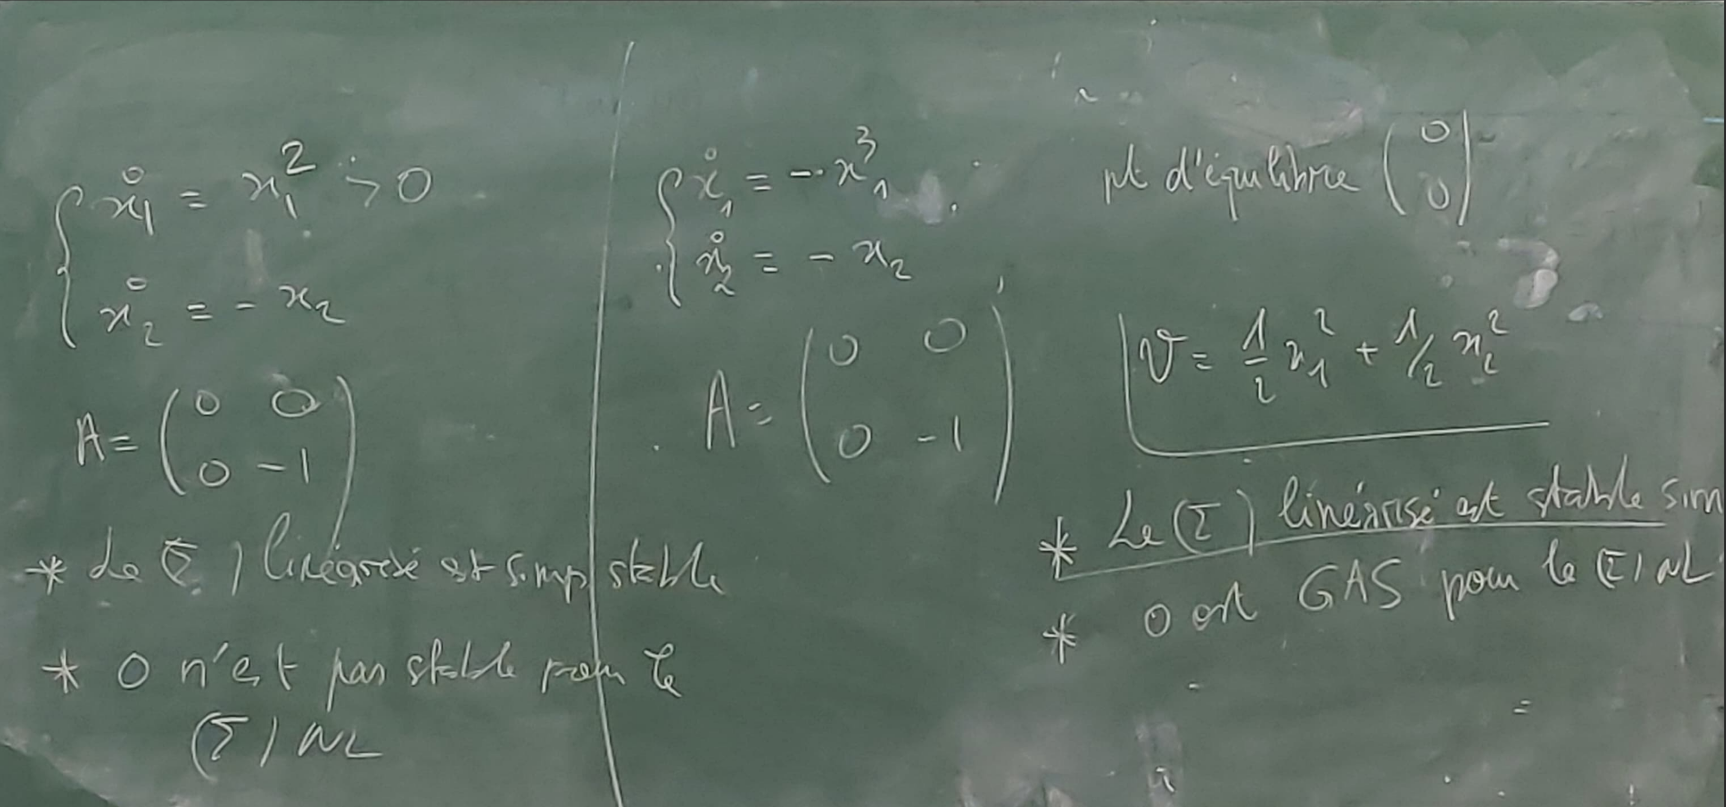 ẋ₁ = x₁² > 0
ẋ₂ = - x₂
A = (0 0
0 -1)
* Le (Σ) linéarisé est simp stable
* 0 n'est pas stable pour le
(Σ) NL
ẋ₁ = - x₁³
ẋ₂ = - x₂
A = (0 0
0 -1)
pt d'équilibre (0
0)
V = 1/2 x₁² + 1/2 x₂²
* Le (Σ) linéarisé est stable sim
* 0 est GAS pour le (Σ) NL